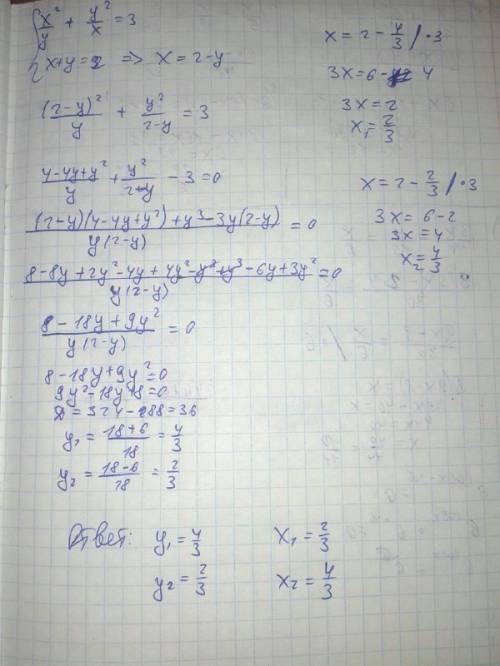 { x²/y + y²/x = 3
x+y=2 => x = 2-y
(2-y)²/y + y²/2-y = 3
4-4y+y²/y + y²/2-y - 3 = 0
(2-y)(4-4y+y²)+y³-3y(2-y)/y(2-y) = 0
8-8y+2y²-4y+4y²-y³+y³-6y+3y²/y(2-y) = 0
8-18y+9y²/y(2-y) = 0
8-18y+9y²=0
9y²-18y+8=0
D=324-288=36
y₁ = 18+6/18 = 4/3
y₂ = 18-6/18 = 2/3
x = 2 - 4/3 /·3
3x=6-4
3x=2
x₁=2/3
x = 2 - 2/3 /·3
3x = 6-2
3x=4
x₂=4/3
Ответ: y₁=4/3 x₁=2/3
y₂=2/3 x₂=4/3